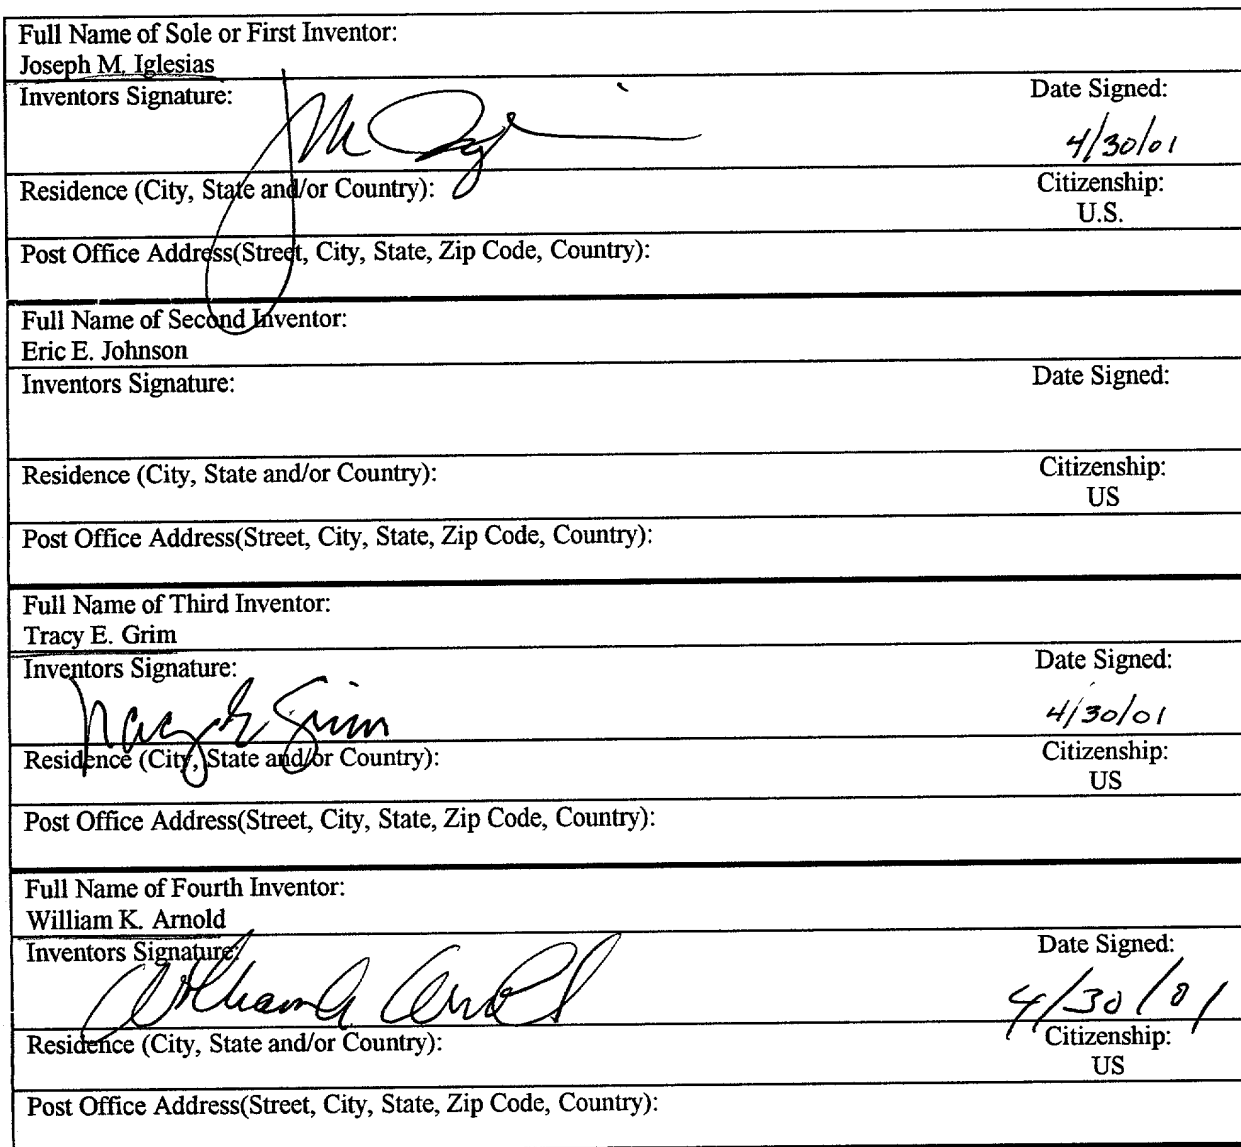 Full Name of Sole or First Inventor:
Joseph M. Iglesias
Inventors Signature: Date Signed:
4/30/01
Residence (City, State and/or Country): Citizenship:
U.S.
Post Office Address(Street, City, State, Zip Code, Country):
Full Name of Second Inventor:
Eric E. Johnson
Inventors Signature: Date Signed:
Residence (City, State and/or Country): Citizenship:
US
Post Office Address(Street, City, State, Zip Code, Country):
Full Name of Third Inventor:
Tracy E. Grim
Inventors Signature: Date Signed:
Tracy E. Grim 4/30/01
Residence (City, State and/or Country): Citizenship:
US
Post Office Address(Street, City, State, Zip Code, Country):
Full Name of Fourth Inventor:
William K. Arnold
Inventors Signature: Date Signed:
William K Arnold 4/30/01
Residence (City, State and/or Country): Citizenship:
US
Post Office Address(Street, City, State, Zip Code, Country):